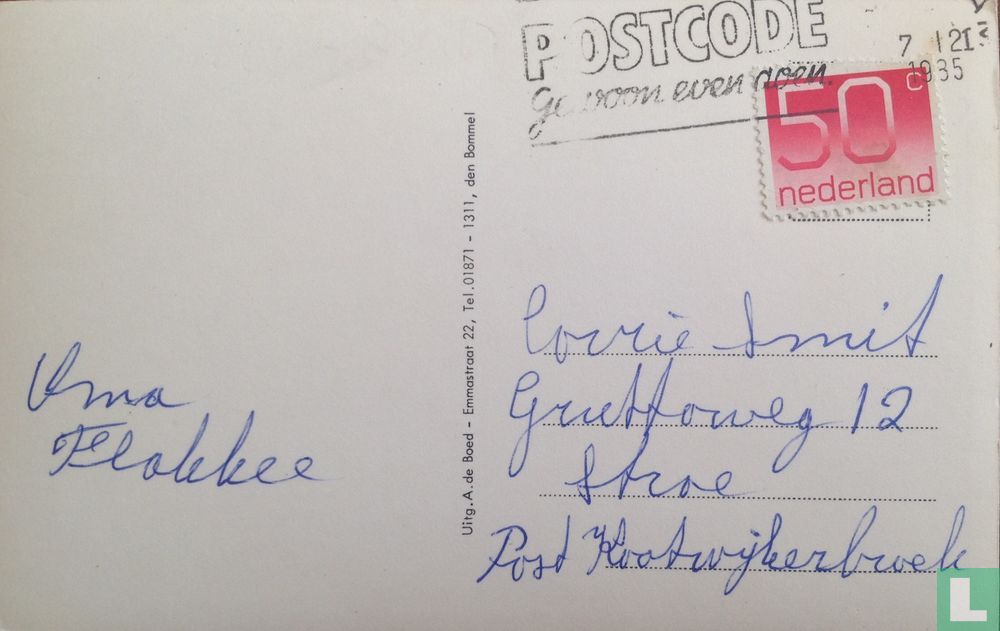 POSTCODE
Gewoon even doen.
7 12
1985
50 c
nederland
Uitg. A. de Boed - Emmastraat 22, Tel. 01871 - 1311, den Bommel
Oma
Flokkee
Corrie Smit
Gruttoweg 12
Stroe
Post Kootwijkerbroek
L